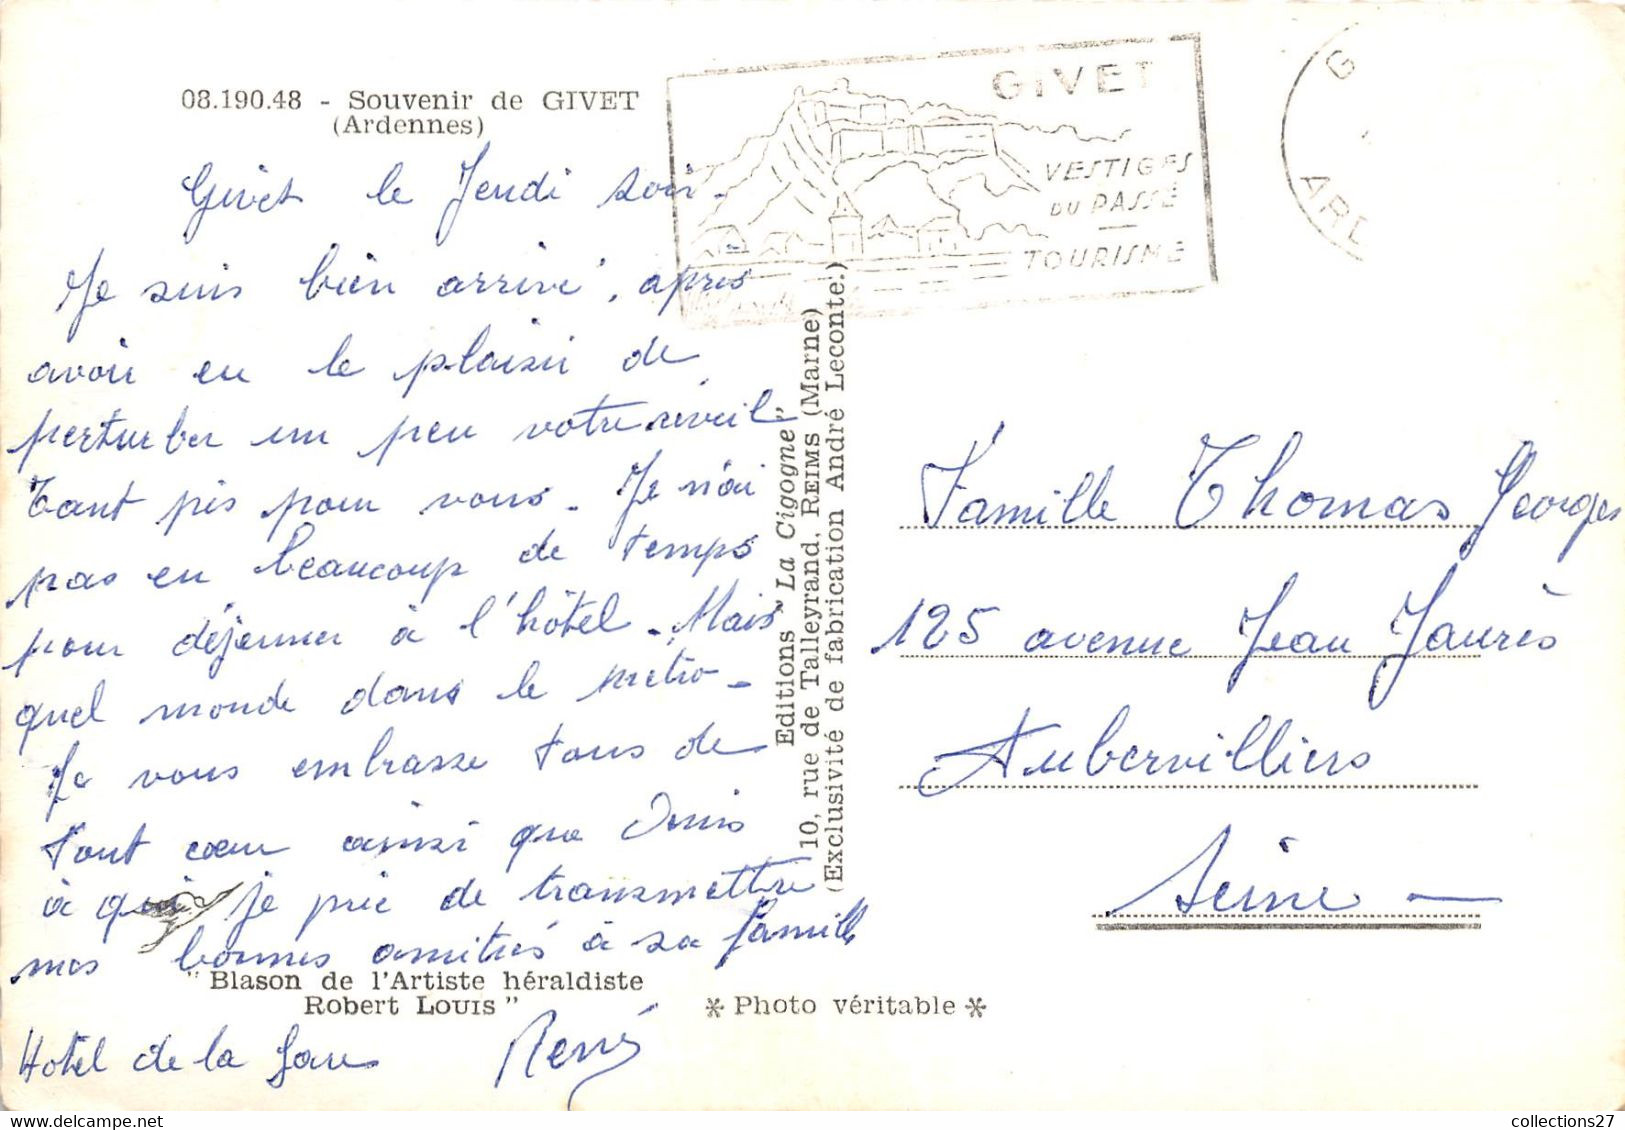 08.190.48 - Souvenir de GIVET
(Ardennes)
GIVET
VESTIGES
DU PASSÉ
—
TOURISME
G
ARD
Givet le Jeudi soir.
Je suis bien arrivé, après
avoir eu le plaisir de
perturber un peu votre réveil
tant pis pour vous. Je n'ai
pas eu beaucoup de temps
pour déjeuner à l'hôtel. Mais
quel monde dans le métro.
Je vous embrasse tous de
tout cœur ainsi que Denis
à qui je prie de transmettre
mes bonnes amitiés à sa famille
"Blason de l'Artiste héraldiste
Robert LOUIS"
Hotel de la Gare René
* Photo véritable *
Editions "La Cigogne"
10, rue de Talleyrand, REIMS (Marne)
(Exclusivité de fabrication André Leconte.)
Famille Thomas Georges
125 avenue Jean Jaurès
Aubervilliers
Seine —
collections27